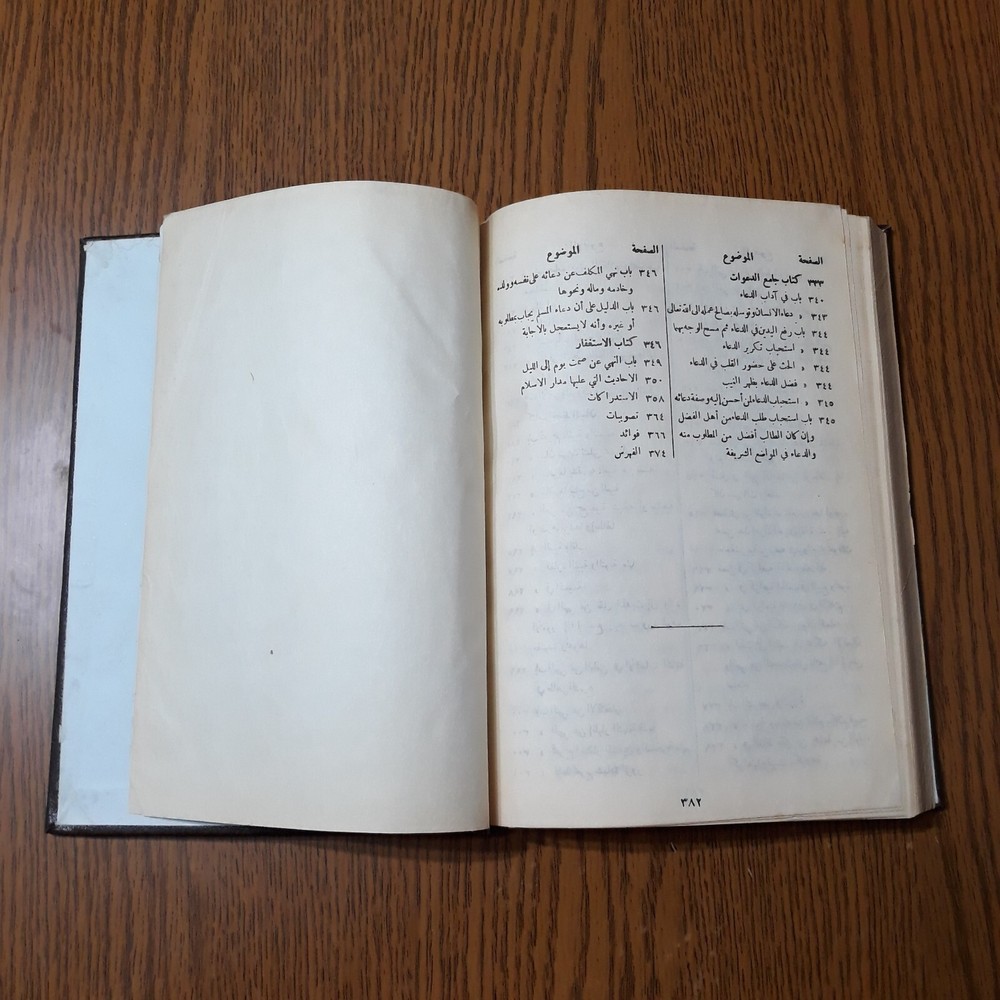 الصفحة الموضوع
٣٣٣ كتاب جامع الدعوات
٣٤٠ باب في آداب الدعاء
٣٤٣ « دعاء الانسان وتوسله بصالح عمله الى الله تعالى
٣٤٤ باب رفع اليدين في الدعاء ثم مسح الوجه بهما
٣٤٤ « استحباب تكرير الدعاء
٣٤٤ « الحث على حضور القلب في الدعاء
٣٤٤ « فضل الدعاء بظهر الغيب
٣٤٥ « استحباب الدعاء لمن أحسن إليه وصفة دعائه
٣٤٥ باب استحباب طلب الدعاء من أهل الفضل
وإن كان الطالب أفضل من المطلوب منه
والدعاء في المواضع الشريفة
الصفحة الموضوع
٣٤٦ باب نهي المكلف عن دعائه على نفسه وولده
وخادمه وماله ونحوها
٣٤٦ باب الدليل على أن دعاء المسلم يجاب بمطلوبه
أو غيره وأنه لا يستعجل بالاجابة
٣٤٦ كتاب الاستغفار
٣٤٩ باب النهي عن صمت يوم إلى الليل
٣٥٠ الاحاديث التي عليها مدار الاسلام
٣٥٨ الاستدراكات
٣٦٤ تصويبات
٣٦٦ فوائد
٣٧٤ الفهرس
٣٨٢